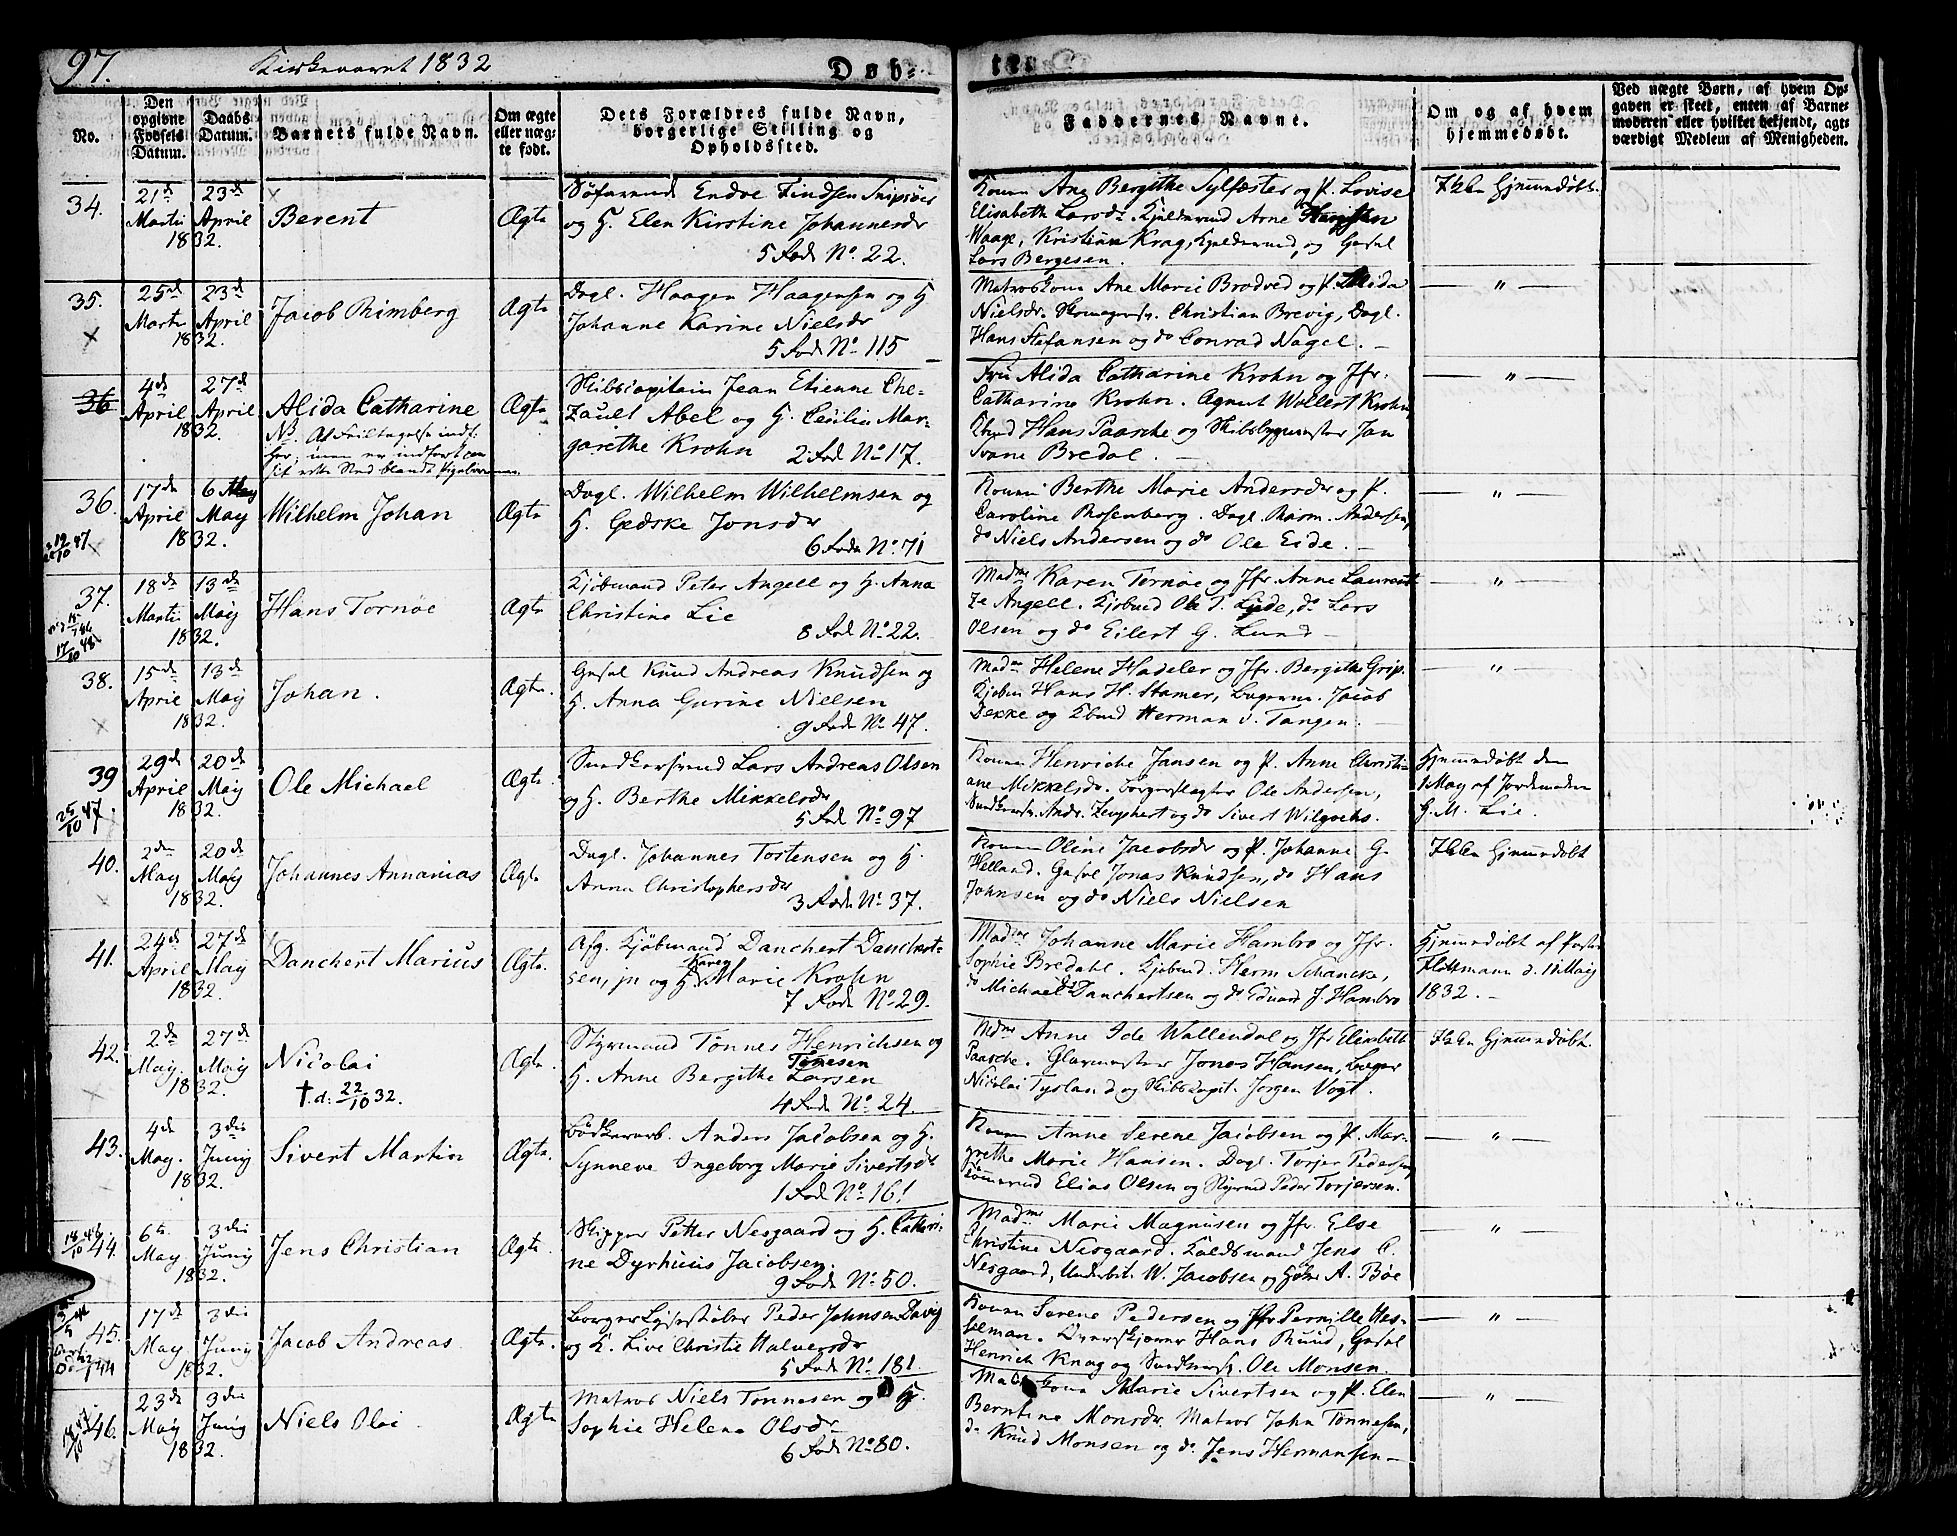 97.
Kirkeaaret 1832
Døb-
te.
No.
Den opgivne Fødsels Datum.
Daabs Datum.
Barnets fulde Navn.
Om ægte eller uæg-te født.
Dets Forældres fulde Navn, borgerlige Stilling og Opholdssted.
Faddernes Navne.
Om og af hvem hjemmedøbt.
Ved uægte Børn, af hvem Op-
gaven er skeet, enten af Barne-
moderen eller hvilket bekjendt, agt-
værdigt Medlem af Menigheden.
34.
21de Martii 1832.
23de April
Berent
Ægte
Søfarende Endre Findsen
og H. Elen Kirstine Johannesdr
5 Fode No. 22.
Konen Ane Bergithe Sylfæster og P. Lovise
Elisabeth Larsdr. Kjeldermd Arne
Waage, Kristian Krag, Kjeldermd, og Gasel
Lars Bergesen.
Ikke Hjemmedøbt.
35.
25de Marti 1832.
23de April
Jacob Rimberg
Ægte
Dagl. Haagen Haagensen og H
Johanne Karine Nielsdr
5 Fode No. 115
Matroskone Ane Marie Brodved og P. Alida
Nielsdr. Christian Brevig, Dagl.
Hans Stefansen og do Conrad Nagel.
— " —
36
4de April 1832.
27de April
Alida Catharine
NB. Af Feiltagelse indf:
her, men er indført
sit rette Sted blandt Pigebørnene.
Ægte
Skibscapitain Jean Etienne Che-
zault Abel og H. Cecilia Mar-
garethe Krohn 2 Fod No. 17.
Fru Alida Catharine Krohn og Jfr.
Catharine Krohn. Agent Wollert Krohn
Hans Paasche og Skibsbygmester Jan
Svane Bredal.
— " —
36.
17de April 1832.
6 May
Wilhelm Johan
Ægte
Dagl. Wilhelm Wilhelmsen og
H. Gedske Jonsdr
6 Fode No. 71
Konen Berthe Marie Andersdr og P.
Caroline Rosenberg. Dagl. Rasm. Andersen,
do Niels Andersen og do Ole Eide.
— " —
37.
18de Martii 1832.
13de Maij
Hans Tornøe
Ægte
Kjøbmand Peter Angell og H. Anna
Christine Lie
8 Fod No. 22.
Madme Karen Tornøe og Jfr. Anne Laurent-
ze Angell. Kjøbmd Ole J. Lyde, do Lars
Olsen og do Eilert G. Lund
— " —
38.
15de April 1832.
13de Maij
Johan.
Ægte.
Gasel Knud Andreas Knudsen og
H. Anna Gurine Nielsen
9 Fode No. 47.
Madme Helene Hadeler og Jfr. Bergithe Grip.
Kjøbm Hans H. Stamer, Jacob
Dekke og Herman v. Tangen.
— " —
39
29de April 1832.
20de Maij
Ole Michael
Ægte.
Lars Andreas Olsen
og H. Berthe Mikkelsdr
5 Fød No. 97
Konen Henriche Jansen og P. Anne Christi-
ane Mikkelsdr. Ole Andersen,
Andr. og do Sivert
Hjemmedøbt den
1 May af Jordemoderen
G. M. Lie.
40.
2den May 1832.
20de Maij
Johannes Annanias
Ægte
Dagl. Johannes Tostensen og H.
Anna Christophersdr
3 Fode No. 37.
Konen Oline Jacobsdr og P. Johanne G.
Helland. Gasel Jonas Knudsen, do Hans
Johnsen og do Niels Nielsen
Ikke Hjemmedøbt
41.
24de April 1832.
27de Maij
Danchert Marius
Ægte.
Afg. Kjøbmand Danchert Danchert-
sen, jn og H. Karen Marie Krohn
7 Fode No. 29.
Madme Johanne Marie Hambro og Jfr.
Sophie Bredahl. Kjøbmd. Herm Schancke,
do Michael Danchertsen og do Eduard J. Hambro
Hjemmedøbt af Pastor
Flottmann d. 11 Maij
1832.
42.
2de May. 1832.
27de Maij
Nicolai
† d: 22/10 32.
Ægte.
Styrmand Tønnes Henrichsen og
H. Anne Bergithe Larsen Tønesen
4 Fode No. 24.
Madme Anne Ide Wallendal og Jfr Elisabeth
Paasche. Glarmester Jonas Hansen, Borger
Nicolai Tysland og Skibscapit. Jørgen Vogt.
Ikke Hjemmedøbt.
43.
4de May. 1832.
3die Junij
Sivert Martin
Ægte.
Bødkerarb. Anders Jacobsen og H.
Synneve Ingeborg Marie Sivertsdr
1 Fode No. 161
Konen Anne Serene Jacobsen og P. Mar-
grethe Marie Hansen. Dagl. Torjer Pedersen,
Tømmermd Elias Olsen og Styrmd Peder Torjersen.
— " —
44.
6te May 1832.
3die Junij
Jens Christian
Ægte.
Skipper Petter Nesgaard og H. Cathri-
ne Dyrhuus Jacobsen.
9 Fode No. 50.
Madme Marie Magnusen og Jfr. Else
Christine Nesgaard. Jens C.
Nesgaard, W. Jacobsen og A. Bøe
— " —
45.
17de May 1832.
3die Junij
Jacob Andreas
Ægte.
Borger Lysestøber Peder Johnsen Davig
og H. Live Christie Halversdr
5 Fode No. 181.
Konen Serene Pedersen og Jfr Pernille Has-
selman. Hans Ruud, Gasel
Henrich Knag og Ole Monsen.
— " —
46.
23de Maij 1832.
3die Junij
Niels Olai
Ægte
Matros Niels Tønnesen og H.
Sophie Helene Olsdr
6 Fode No 80.
Matroskone Marie Sivertsen og P. Elen
Berntine Monsdr. Matros John Tønnesen,
do Knud Monsen og do. Jens Hermansen
— " —